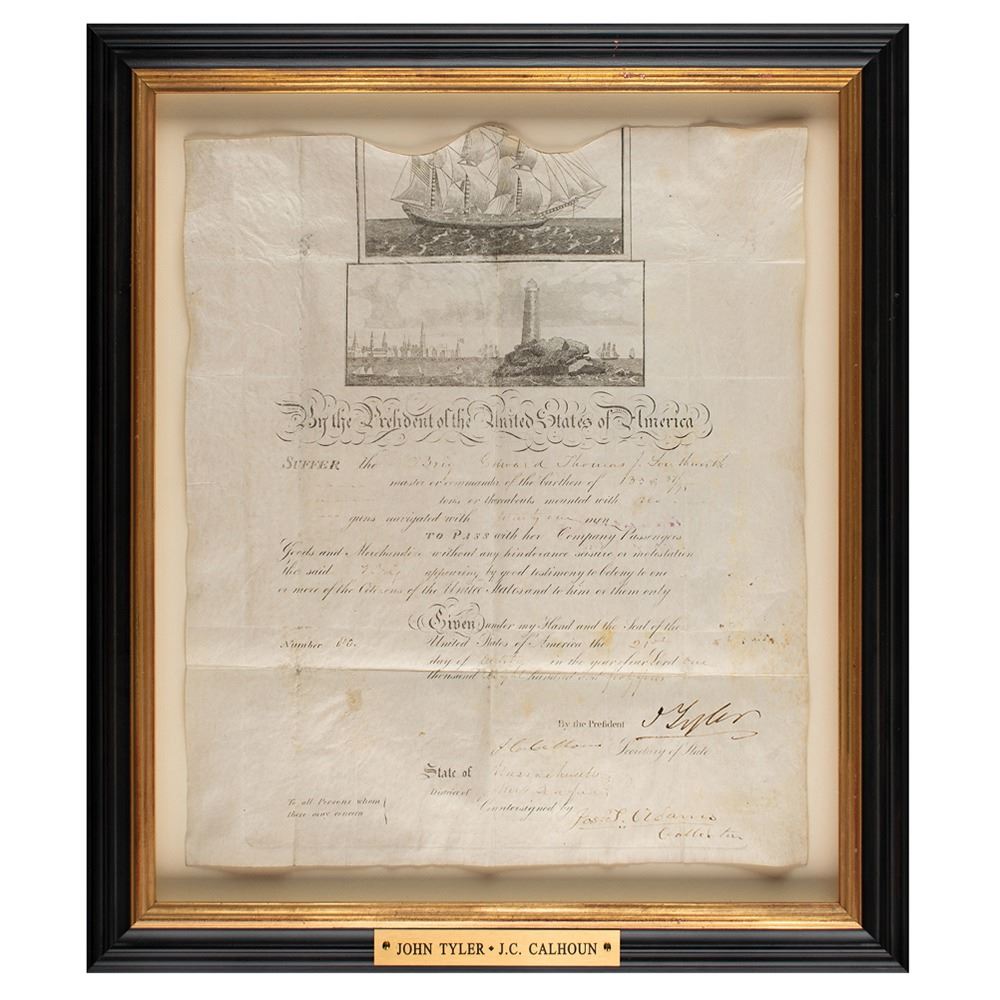 By the President of the United States of America
SUFFER the Brig Edward Thomas J. Southworth
master or commander of the burthen of
tons or thereabouts mounted with no
guns navigated with men
TO PASS with her Company Passengers
Goods and Merchandize without any hinderance seisure or molestation
the said Brig appearing by good testimony to belong to one
or more of the Citizens of the United States and to him or them only
Given under my Hand and the Seal of the
Number United States of America the
day of in the year of our Lord one
thousand eight hundred and forty four
By the President J Tyler
J C Calhoun Secretary of State
State of Massachusetts
District of
Countersigned by
To all Persons whom
these may concern
Adams
Collector
JOHN TYLER • J.C. CALHOUN